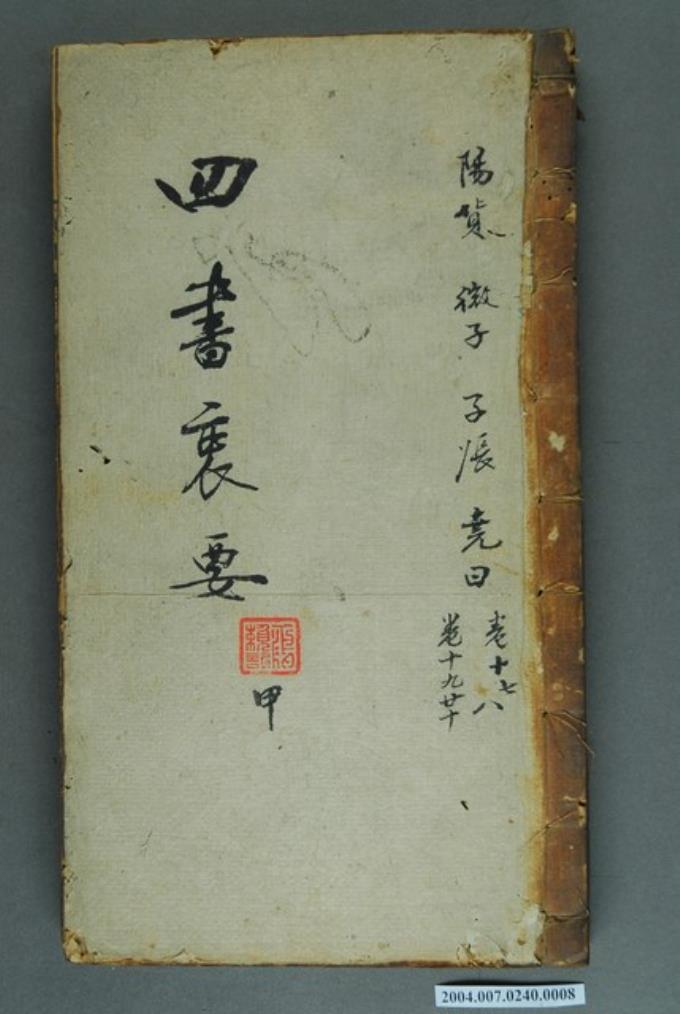 陽貨 微子 子張 堯曰
卷十七八
卷十九廿十
四書衷要
甲
2004.007.0240.0008